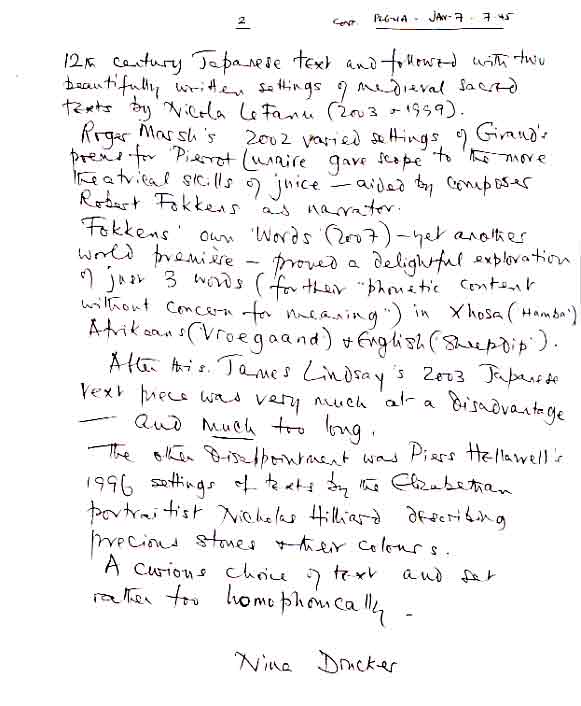 2 CONT. PLG-NA - JAN-7 - 7.45
12th century Japanese text and followed with two
beautifully written settings of medieval sacred
texts by Nicola LeFanu (2003 + 1999).
Roger Marsh's 2002 varied settings of Giraud's
poems for 'Pierrot Lunaire gave scope to the more
theatrical skills of juice – aided by composer
Robert Fokkens as narrator.
Fokkens' own 'Words' (2007) – yet another
world première – proved a delightful exploration
of just 3 words (for their "phonetic content
without concern for meaning") in Xhosa ('Hamba')
Afrikaans ('Vroegaand') + English ('Sheepdip').
After this, James Lindsay's 2003 Japanese
text piece was very much at a disadvantage
– and much too long.
The other disappointment was Piers Hellawell's
1996 settings of texts by the Elizabethan
portraitist Nicholas Hilliard describing
precious stones + their colours.
A curious choice of text and set
rather too homophonically.
Nina Drucker